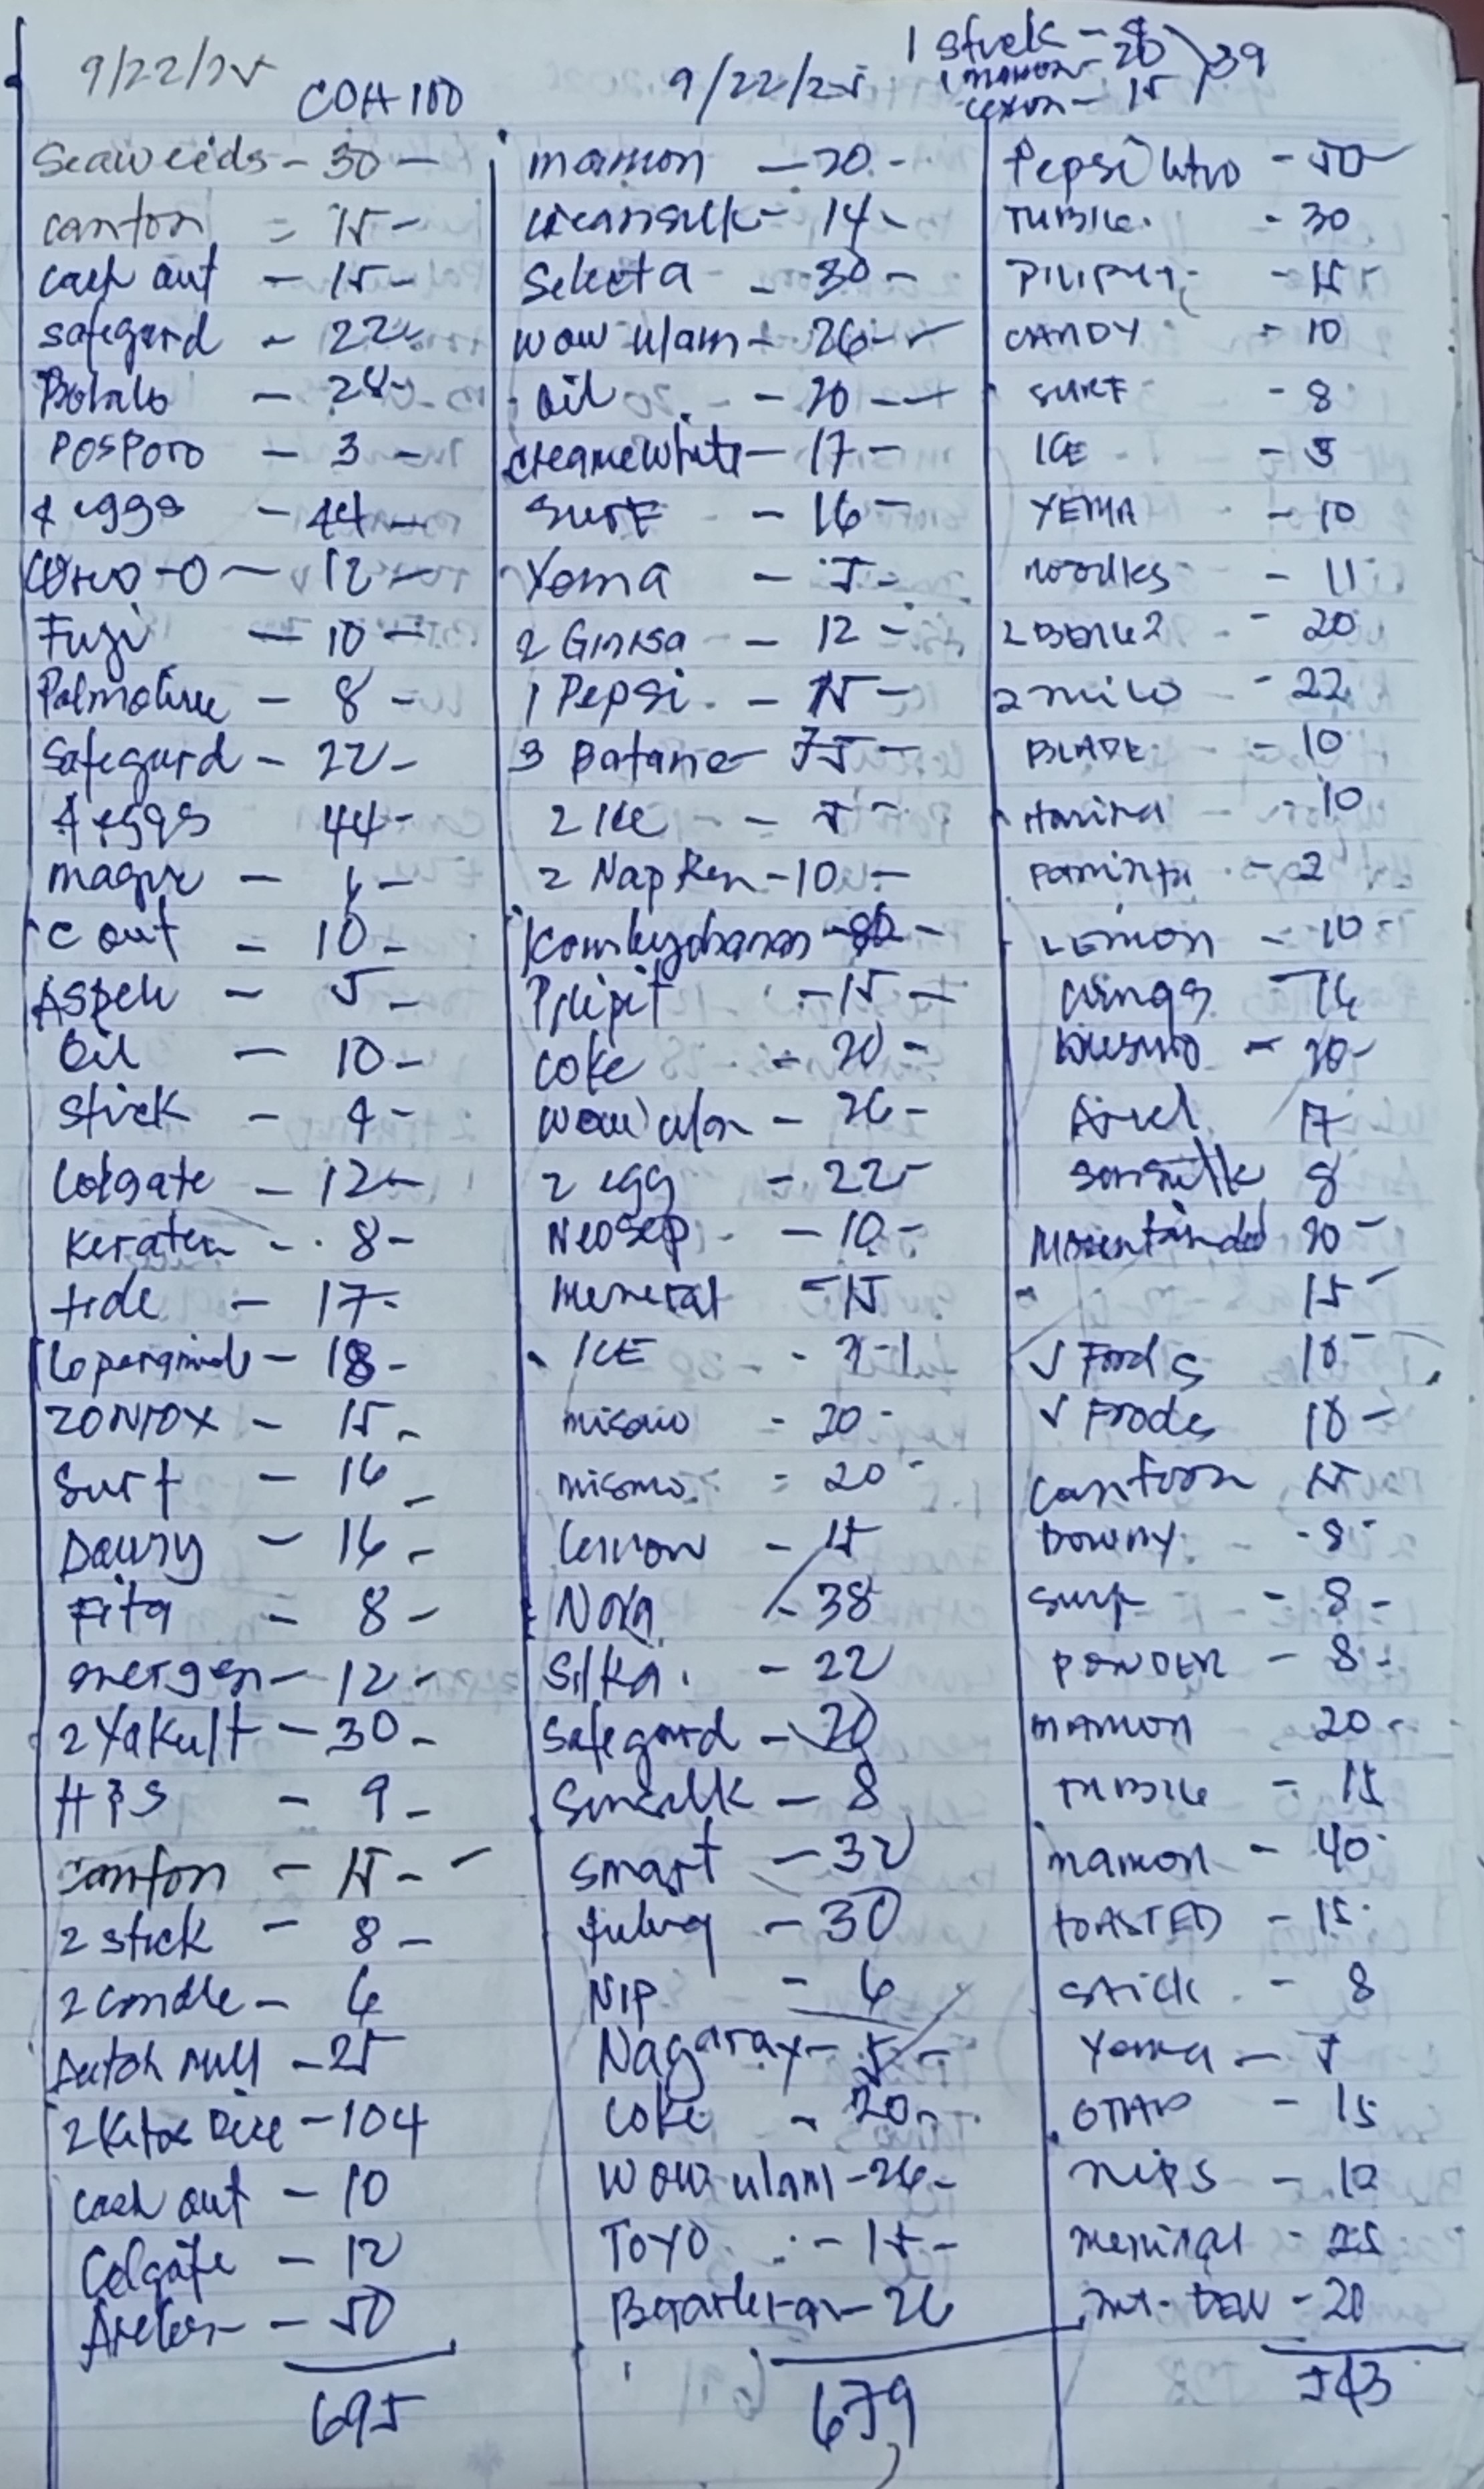 9/22/25
COH 100
Seaweeds - 30 -
canton = 15 -
cash out - 15 -
safegard - 22 -
- 28 -
POSPORO - 3 -
4 eggs - 44 -
- 12 -
Fuji - 10 -
Palmolive - 8 -
Safegurd - 22 -
4 eggs 44 -
- 6 -
C out - 10 -
- 5 -
Oil - 10 -
Stick - 4 -
Colgate - 12 -
Keraten - 8 -
tide - 17 -
- 18 -
ZONROX - 15 -
Surf - 16 -
Dawny - 16 -
Fita - 8 -
energen - 12 -
2 Yakult - 30 -
H & S - 9 -
Canton - 15 -
2 stick - 8 -
2 candle - 6
Dutch Mill - 25
2 Kilos Rice - 104
Cash out - 10
Colgate - 12
- 50
695
9/22/25
1 Stick - 4
1 mamon - 20 ) 39
Lemon - 15
mamon - 20 -
Creamsilk - 14 -
Selecta - 30 -
wow ulam - 26 -
Oil - 20 -
Creamewhite - 17 -
Surf - 16 -
Yema - 5 -
2 Ginisa - 12 -
1 Pepsi - 15 -
3 Batane - 75 -
2 Ice - 5 -
2 Napken - 10 -
-
Pilipit - 15 -
Coke - 20 -
wow ulam - 26 -
2 egg - 22 -
Neosep - 10 -
Meneral - 15
ICE -
mismo - 20 -
mismo = 20 -
Lemon - 15
Nova - 38
Silka - 22
Safegard - 20
Sunsilk - 8
Smart - 32
- 30
NIP - 6
Nagaraya - 5 -
Coke - 20 -
Wow ulam - 26 -
TOYO - 15 -
- 26
679
Pepsi litro - 50
- 30
PILIPIT - 15
CANDY - 10
SURF - 8
ICE - 5
YEMA - 10
noodles - 11
- 20
2 milo - 22
BLADE - 10
Harina - 10
Paminta - 2
LEMON - 10 -
Wings - 16
- 20 -
Ariel 17
Sunsilk 8
20 -
15 -
10 -
10 -
Cantoon 15
Downy - 8 -
Surf - 8 -
POWDER - 8 -
mamon 20 -
- 15
mamon - 40
TOASTED - 15
Stick - 8
Yema - 5
OTAP - 15
nips - 12
meniral - 25
mt. DEW - 20
543